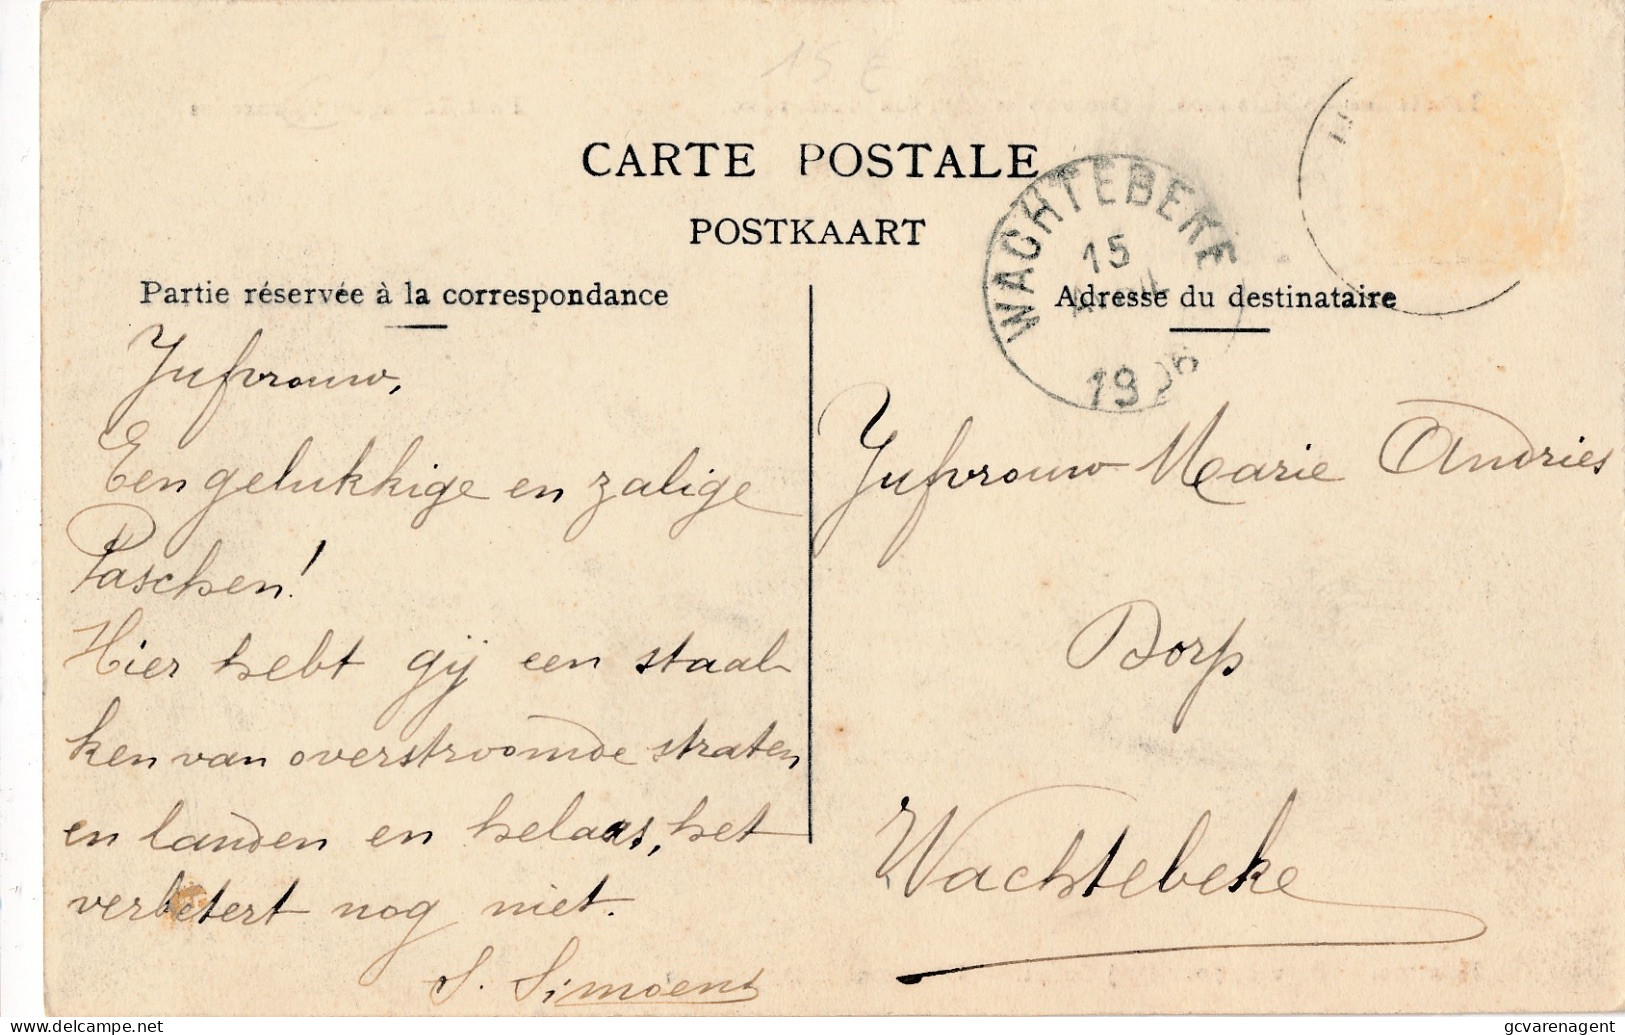 15 E
CARTE POSTALE
POSTKAART
WACHTEBEKE
15
Partie réservée à la correspondance
Adresse du destinataire
Jufvrouw,
Een gelukkige en zalige
Paschen!
Hier hebt gij een staal-
ken van overstroomde straten
en landen en helaas, het
verbetert nog niet.
S. Simoens
Jufvrouw Marie Andries
Dorp
Wachtebeke
delcampe.net
gcvarenagent